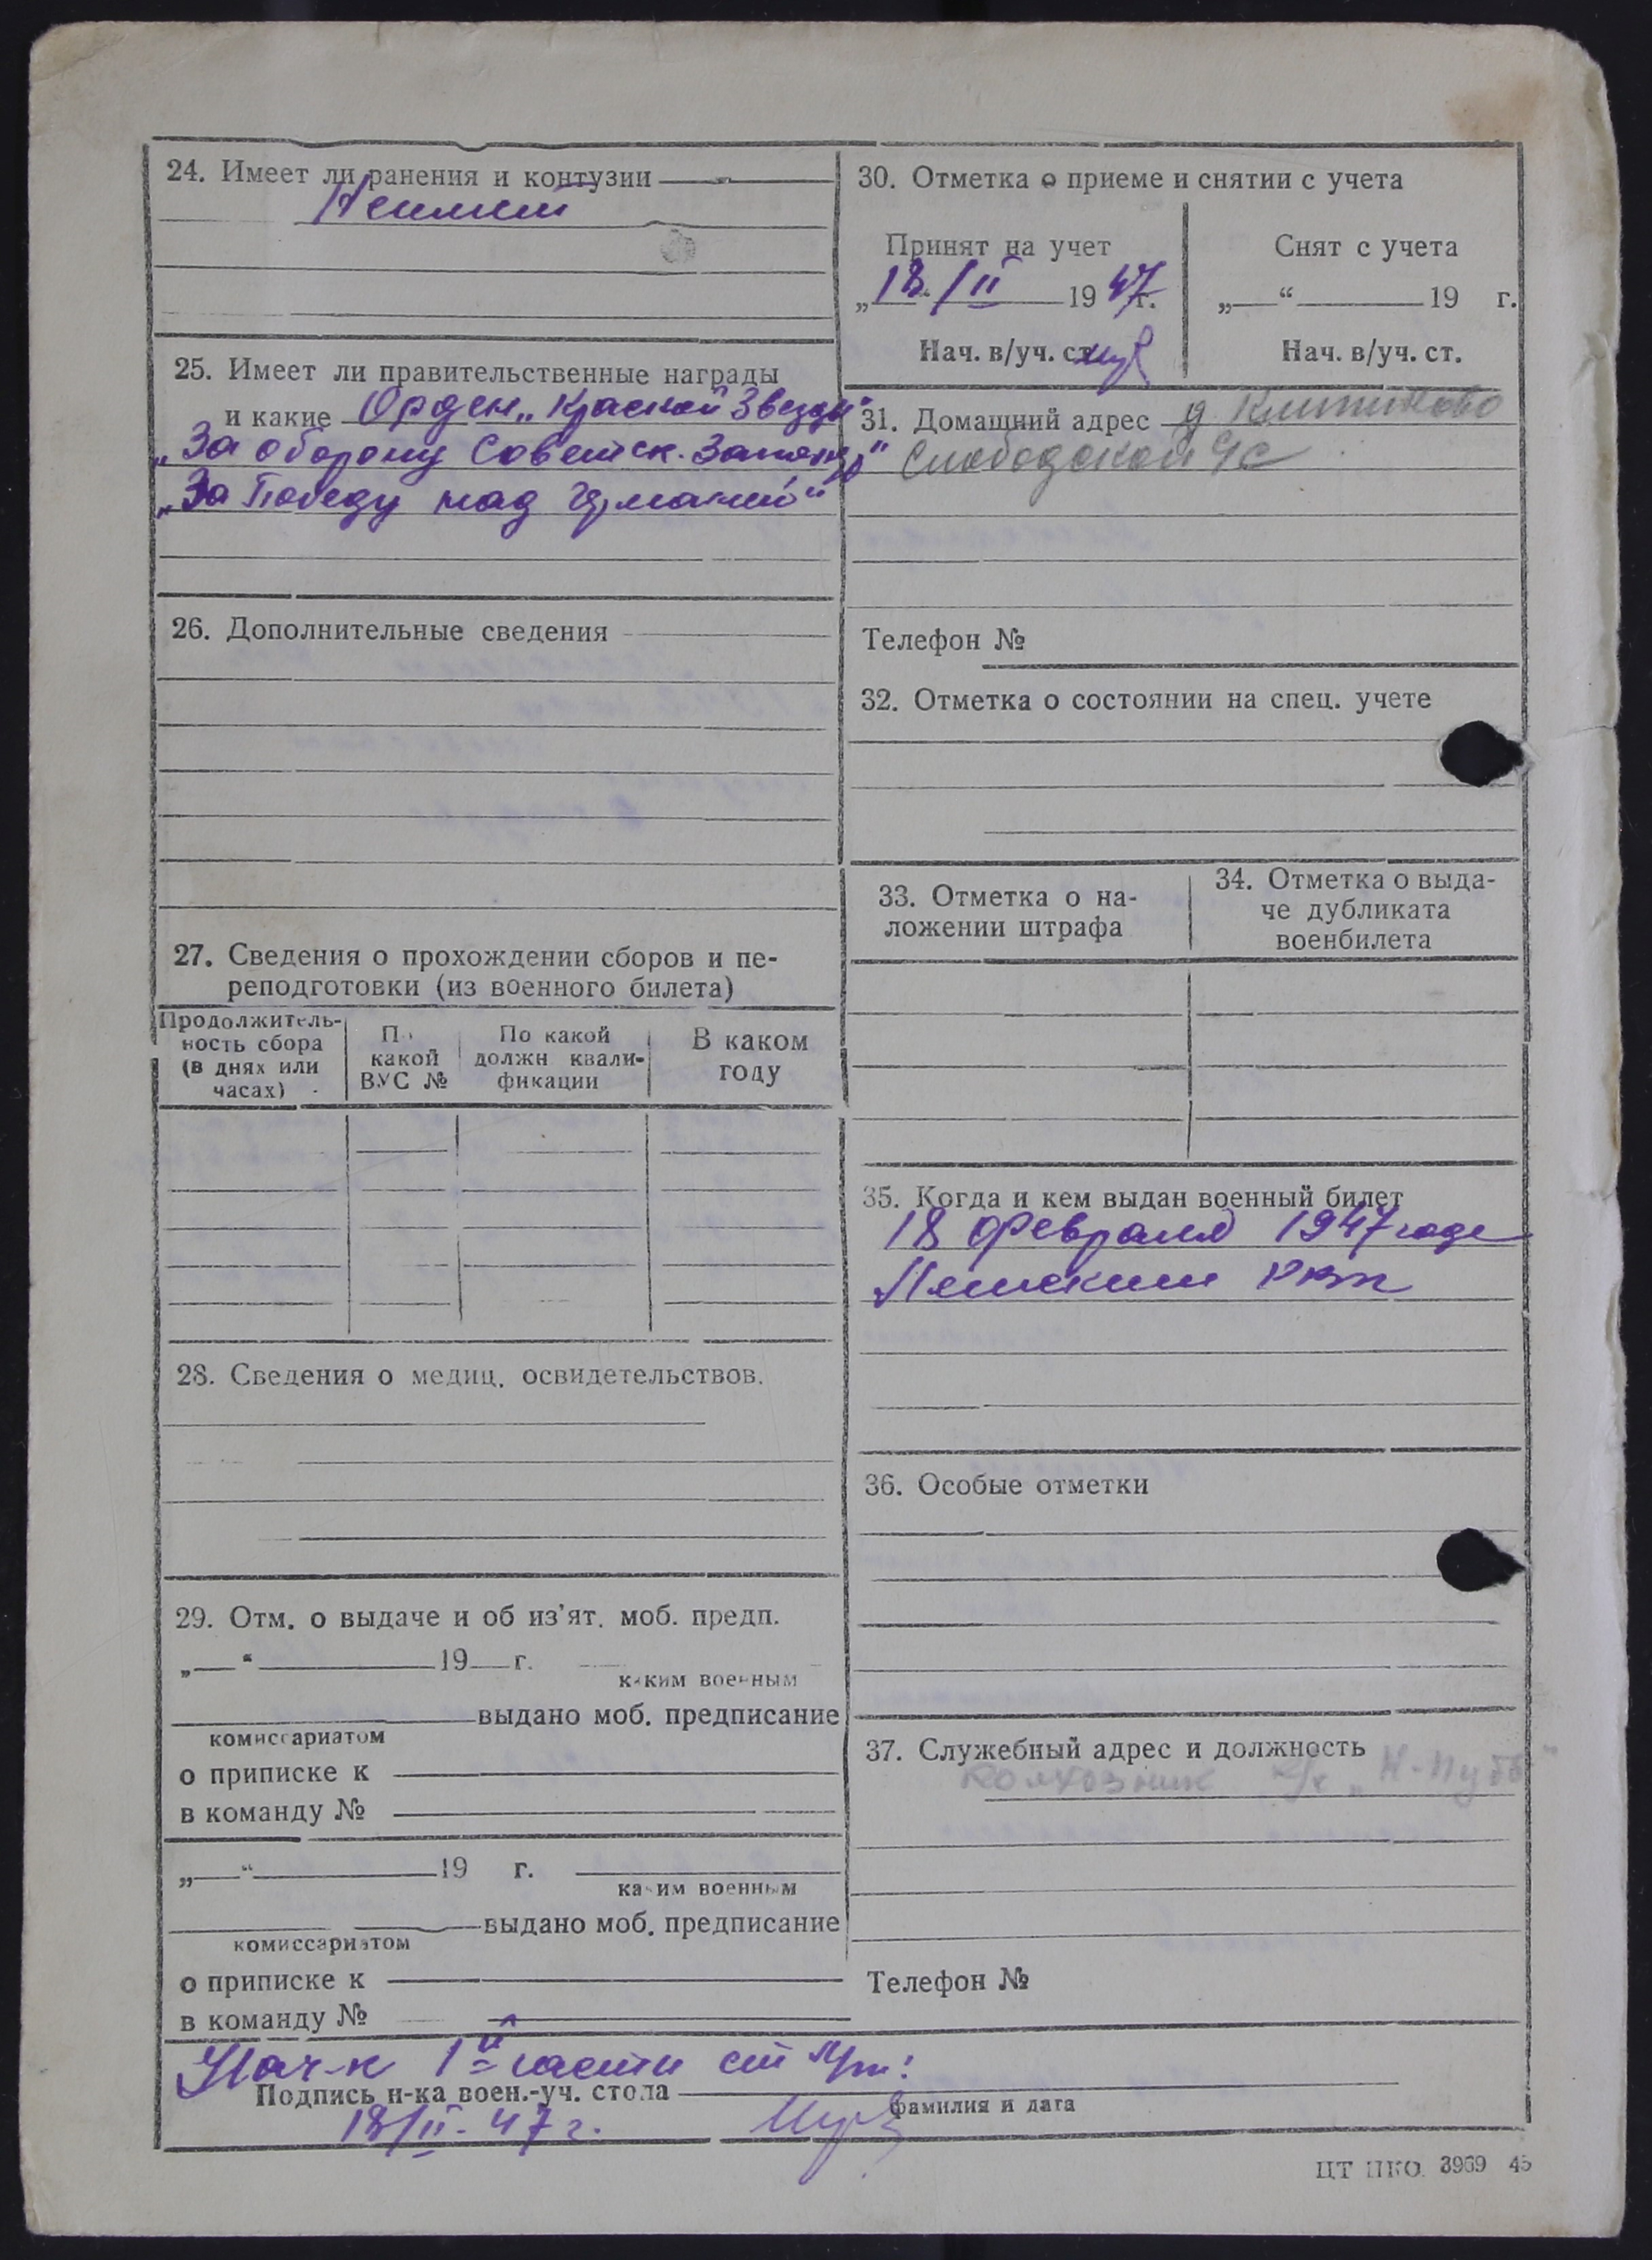 24. Имеет ли ранения и контузии
Неимеет
25. Имеет ли правительственные награды
и какие Орден „Красной Звезды"
„За оборону Советск. Заполяр"
„За Победу над Германией"
26. Дополнительные сведения
27. Сведения о прохождении сборов и пе-
реподготовки (из военного билета)
Продолжитель-
ность сбора
(в днях или
часах)
По
какой
ВУС №
По какой
должн квали-
фикации
В каком
году
28. Сведения о медиц. освидетельствов.
29. Отм. о выдаче и об из'ят. моб. предп.
„ “ 19 г.
каким военным
выдано моб. предписание
комиссариатом
о приписке к
в команду №
„ “ 19 г.
каким военным
выдано моб. предписание
комиссариатом
о приписке к
в команду №
30. Отметка о приеме и снятии с учета
Принят на учет
„18/II 1947г.
Нач. в/уч. ст.
Снят с учета
„ “ 19 г.
Нач. в/уч. ст.
31. Домашний адрес д
Слободской с/с
Телефон №
32. Отметка о состоянии на спец. учете
33. Отметка о на-
ложении штрафа
34. Отметка о выда-
че дубликата
военбилета
35. Когда и кем выдан военный билет
18 февраля 1947 года
РВК
36. Особые отметки
37. Служебный адрес и должность
колхозник к/х „Н-Путь"
Телефон №
Нач-к 1й части ст
Подпись н-ка воен.-уч. стола
фамилия и дата
18/II-47 г.
ЦТ НКО. 3969 45